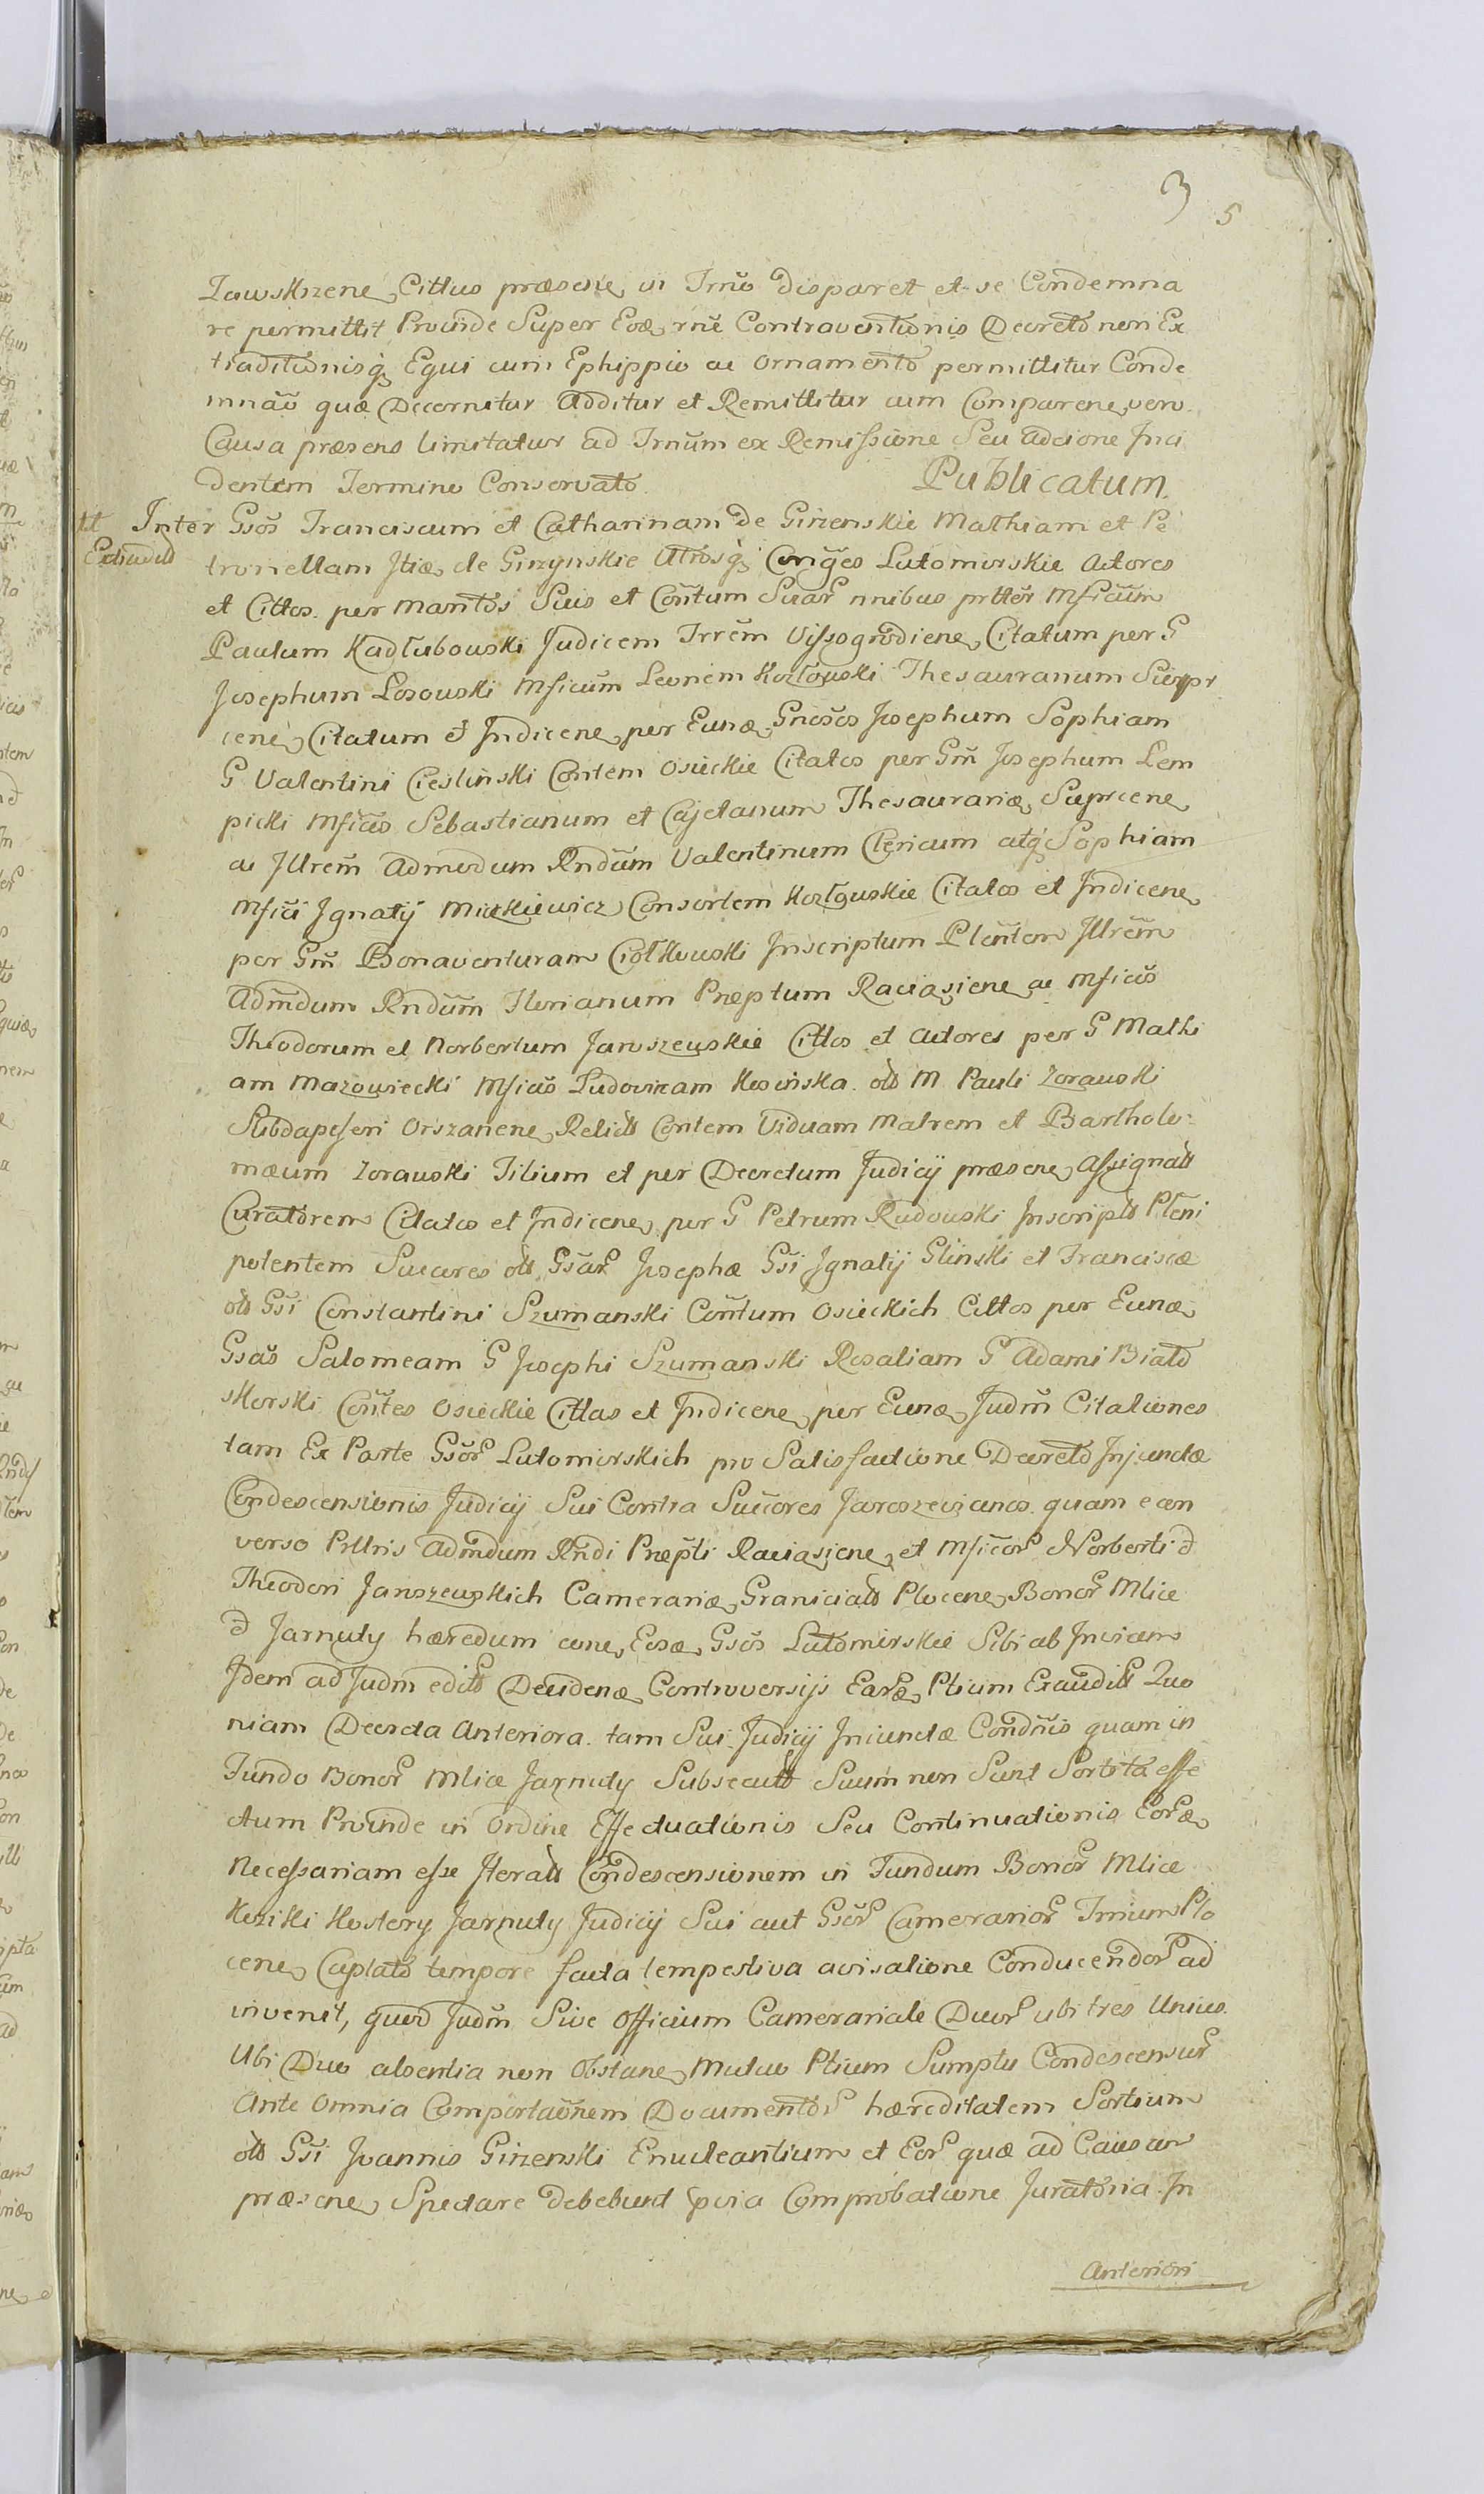 3
5
Cittus præsens in Trno disparet et se Condemna
re permittit Proinde Super Eoæ rne Contraventionis Decreto non Ex
traditionisq Egui cum Ephippio ac Ornamento permittitur Conde
mnao quæ Decernitur Additur et Remittitur cum Comparene vero
Causa præsens limitatur ad Trnum ex Remissione Seu adcione Inci
dentem Termino Conservato Publicatum
Inter Gsos Franciscum et Catharinam de Girzenskie Mathiam et Pe
tronellam Itiæ de Girzynskie Utrosq Conges Lutomirskie Actores
et Cittos per Mantos Suis et Contum Suar nnibus prtter Mficum
Paulum Kadłubowski Judicem Trrem Vissogrodiene Citatum per G
Josephum Losowski Mficum Leonem Kozłowski Thesauranum Sierpr
cene Citatum et Indicene per Eunæ Gnosos Josephum Sophiam
G Valentini Cieslinski Contem Osieckie Citatos per Gm Josephum Lem
picki Mficos Sebastianum et Cajetanum Thesaurariæ Sieprcene
ac Illrem Admodum Rndum Valentinum Clericum atq Sophiam
Mfici Ignatij Mickiewicz Consortem Kozłowskie Citatos et Indicene
per Gm Bonaventuram Ciołkowski Inscriptum Plentem Illrem
Admdum Rndum Florianum Præptum Raciasiene ac Mficos
Theodorum et Norbertum Jaroszewskie Cittos et Actores per G Mathi
am Mazowiecki Mficas Ludovicam Kosinska olt M Pauli Zorawski
Subdapiferi Orszanene Relict Contem Viduam Matrem et Bartholo
mæum Zorawski Filium et per Decretum Judicij præsene Assignatt
Curatorem Citatos et Indicene per G Petrum Rudowski Inscripto Pleni
potentem Succres olt Gsar Josephæ Gsi Ignatij Glinski et Franciscæ
olt Gsi Constantini Szumanski Contum Osieckich Cittos per Eunæ
Gsas Salomeam G Josephi Szumanski Rosaliam G Adami Biało
skorski Contes Osieckie Cittas et Indicene per Eunæ Judm Citationes
tam Ex Parte Gsor Lutomirskich pro Satisfactione Decreto Injunctæ
Condescensionis Judicij Sui Contra Succores Jaroszevianos quam e con
verso Pttris Admdum Rndi Præpti Raciasiene et Mficor Norberti et
Theodori Jaroszewskich Camerariæ Graniciatt Plocene Bonor Mlice
et Jarnuty hæredum cone Eosæ Gsos Lutomirskie Sibi ab Invicem
Idem ad Judm edito Decidenæ Controversijs Earæ Ptium Exauditt Quo
niam Decreta Anteriora tam Sui Judicij Iniunctæ Condnis quam in
Fundo Bonor Mlice Jarnuty Subsecutt Suum non Sunt Sortita effe
ctum Proinde in Ordine Effectuationis Seu Continuationis Eoræ
Necessariam esse Iteratt Condescensionem in Fundum Bonor Mlice
Koziki Kostery Jarnuty Judicij Sui aut Gsor Camerarior Trrium Plo
cene Captato tempore facta tempestiva avisatione Conducendor ad
invenit, quod Judm Sive Officium Camerariale Duor ubi tres Unius
Ubi Duo absentia non Obstane Mutuo Ptium Sumptu Condescensur
Ante Omnia Comportaonem Documentor hæreditatem Sortium
olt Gsi Joannis Girzenski Enucleantium et Eor quæ ad Causam
præsene Spectare debebunt prvia Comprobatione Juratoria In
Anteriori